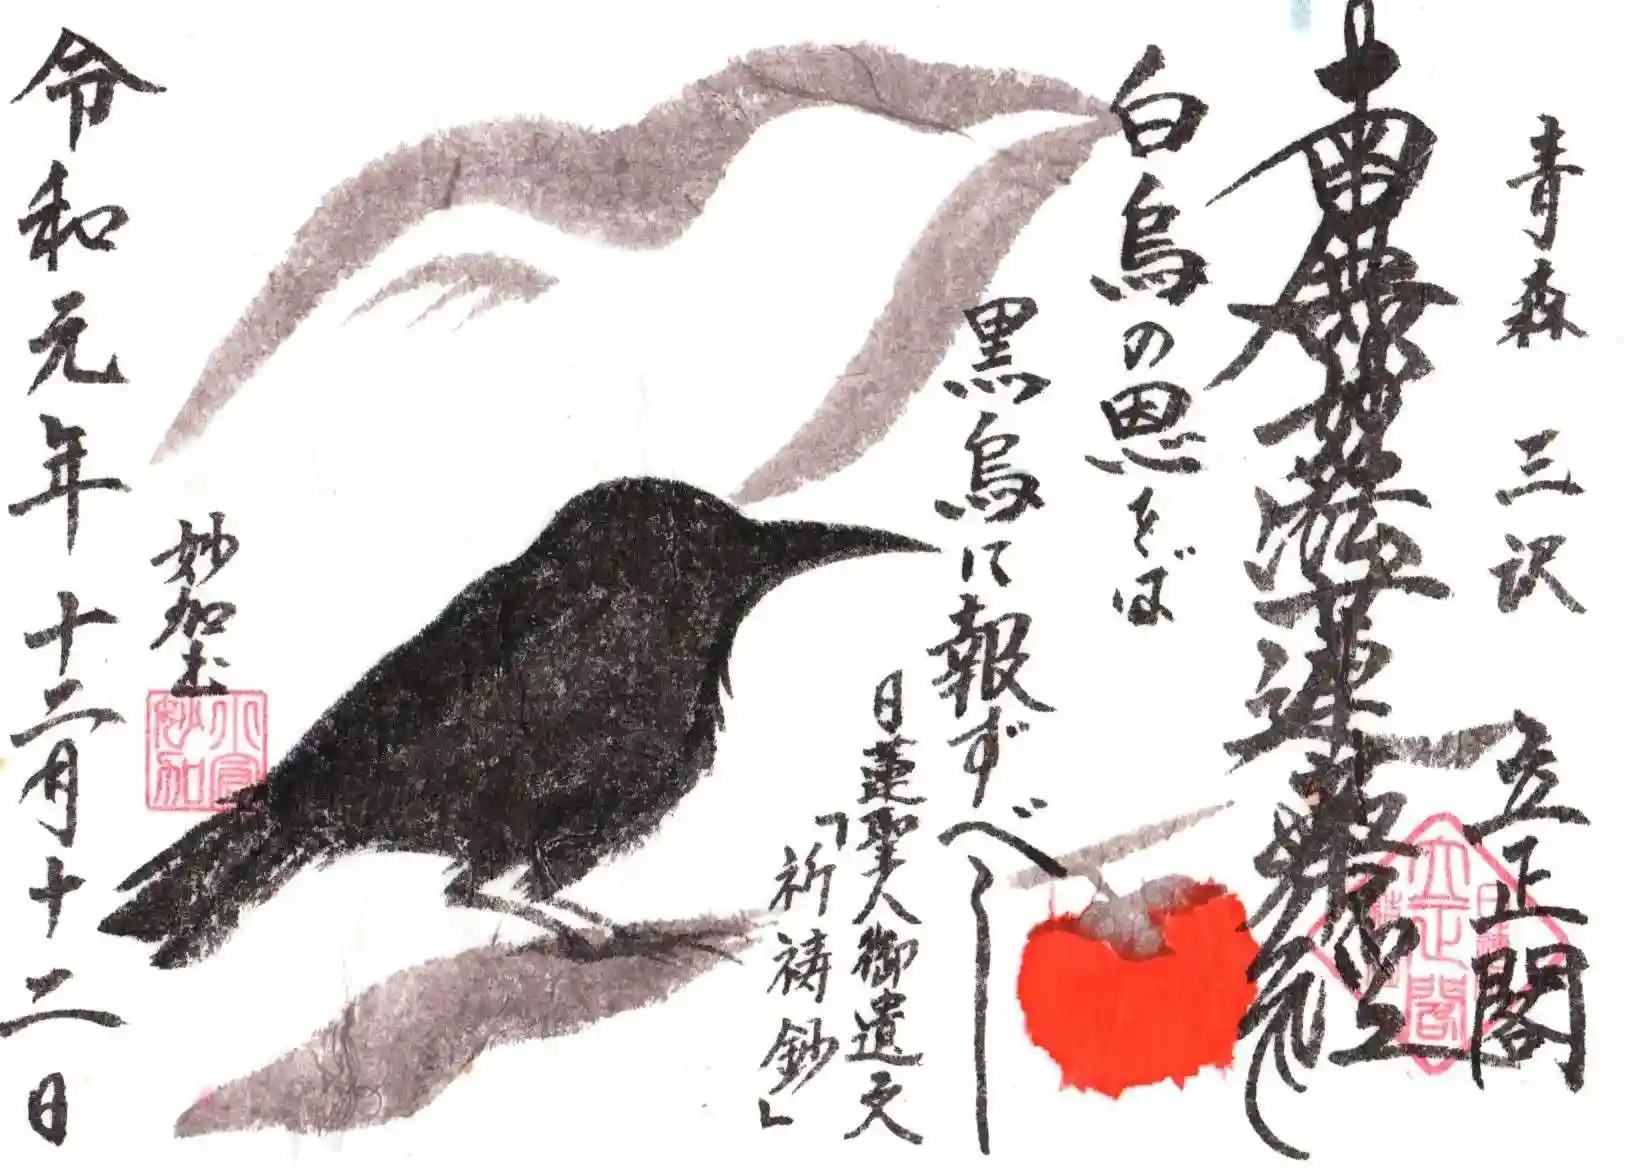 青森 三沢 立正閣
南無妙法蓮華経
白烏の恩をば
黒烏に報ずべし
日蓮聖人御遺文
「祈祷鈔」
妙加
令和元年十二月十二日
立正閣